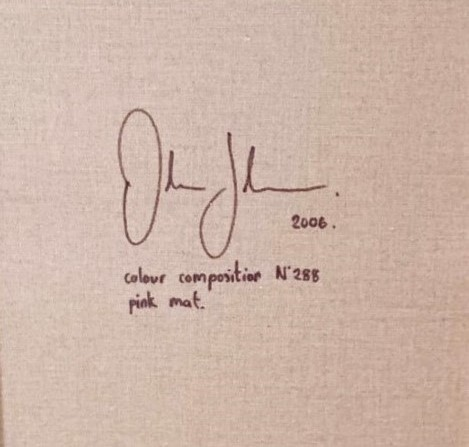 2006.
colour composition N°288
pink mat.